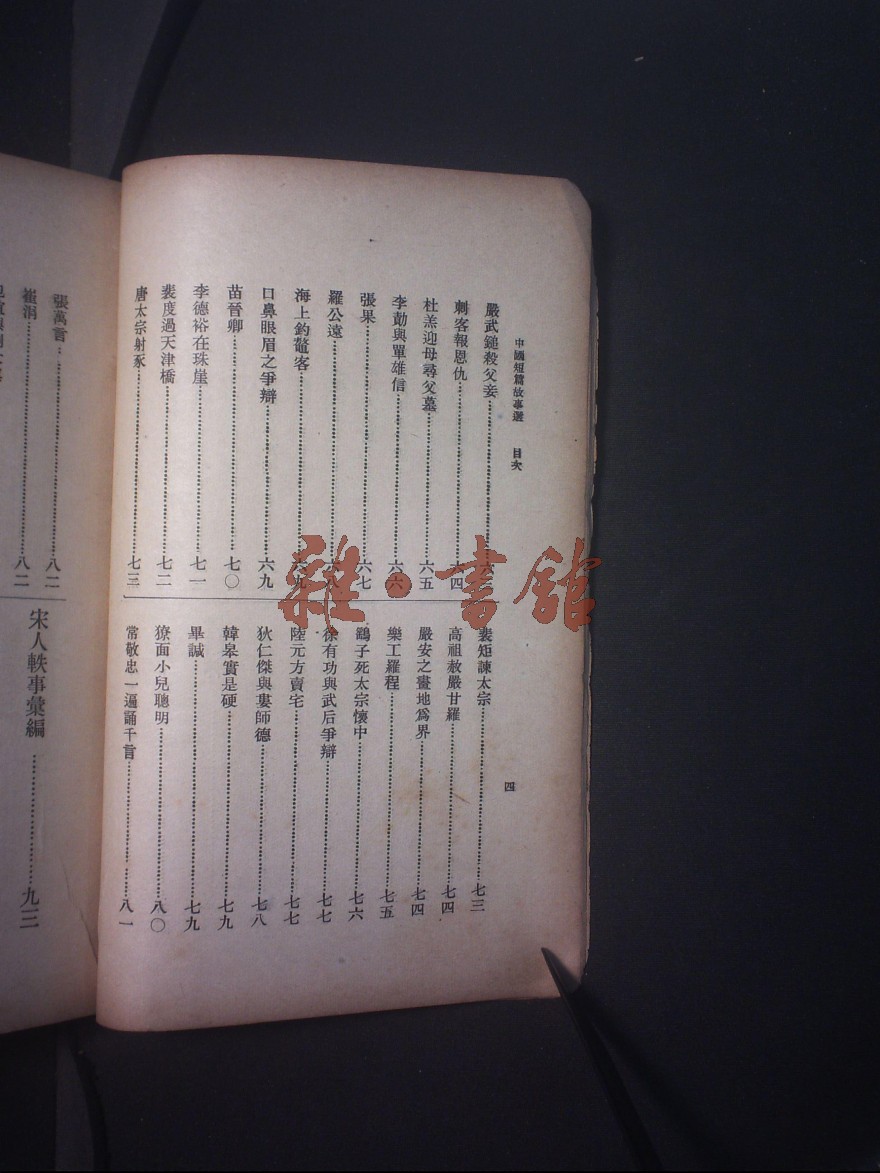 中國短篇故事選 目次 四
嚴武鎚殺父妾
刺客報恩仇 六四
杜羔迎母尋父墓 六五
李勣與單雄信 六六
張果 六七
羅公遠 六八
海上釣鼇客 六九
口鼻眼眉之爭辯 六九
苗晉卿 七〇
李德裕在珠崖 七一
裴度過天津橋 七二
唐太宗射豕 七三
裴矩諫太宗 七三
高祖赦嚴甘羅 七四
嚴安之畫地爲界 七四
樂工羅程 七五
鷂子死太宗懷中 七六
徐有功與武后爭辯 七七
陸元方賣宅 七七
狄仁傑與婁師德 七八
韓皋實是硬 七九
畢諴 七九
獠面小兒聰明 八〇
常敬忠一遍誦千言 八一
張萬言 八二
崔涓 八二
宋人軼事彙編 九三
雜·書館